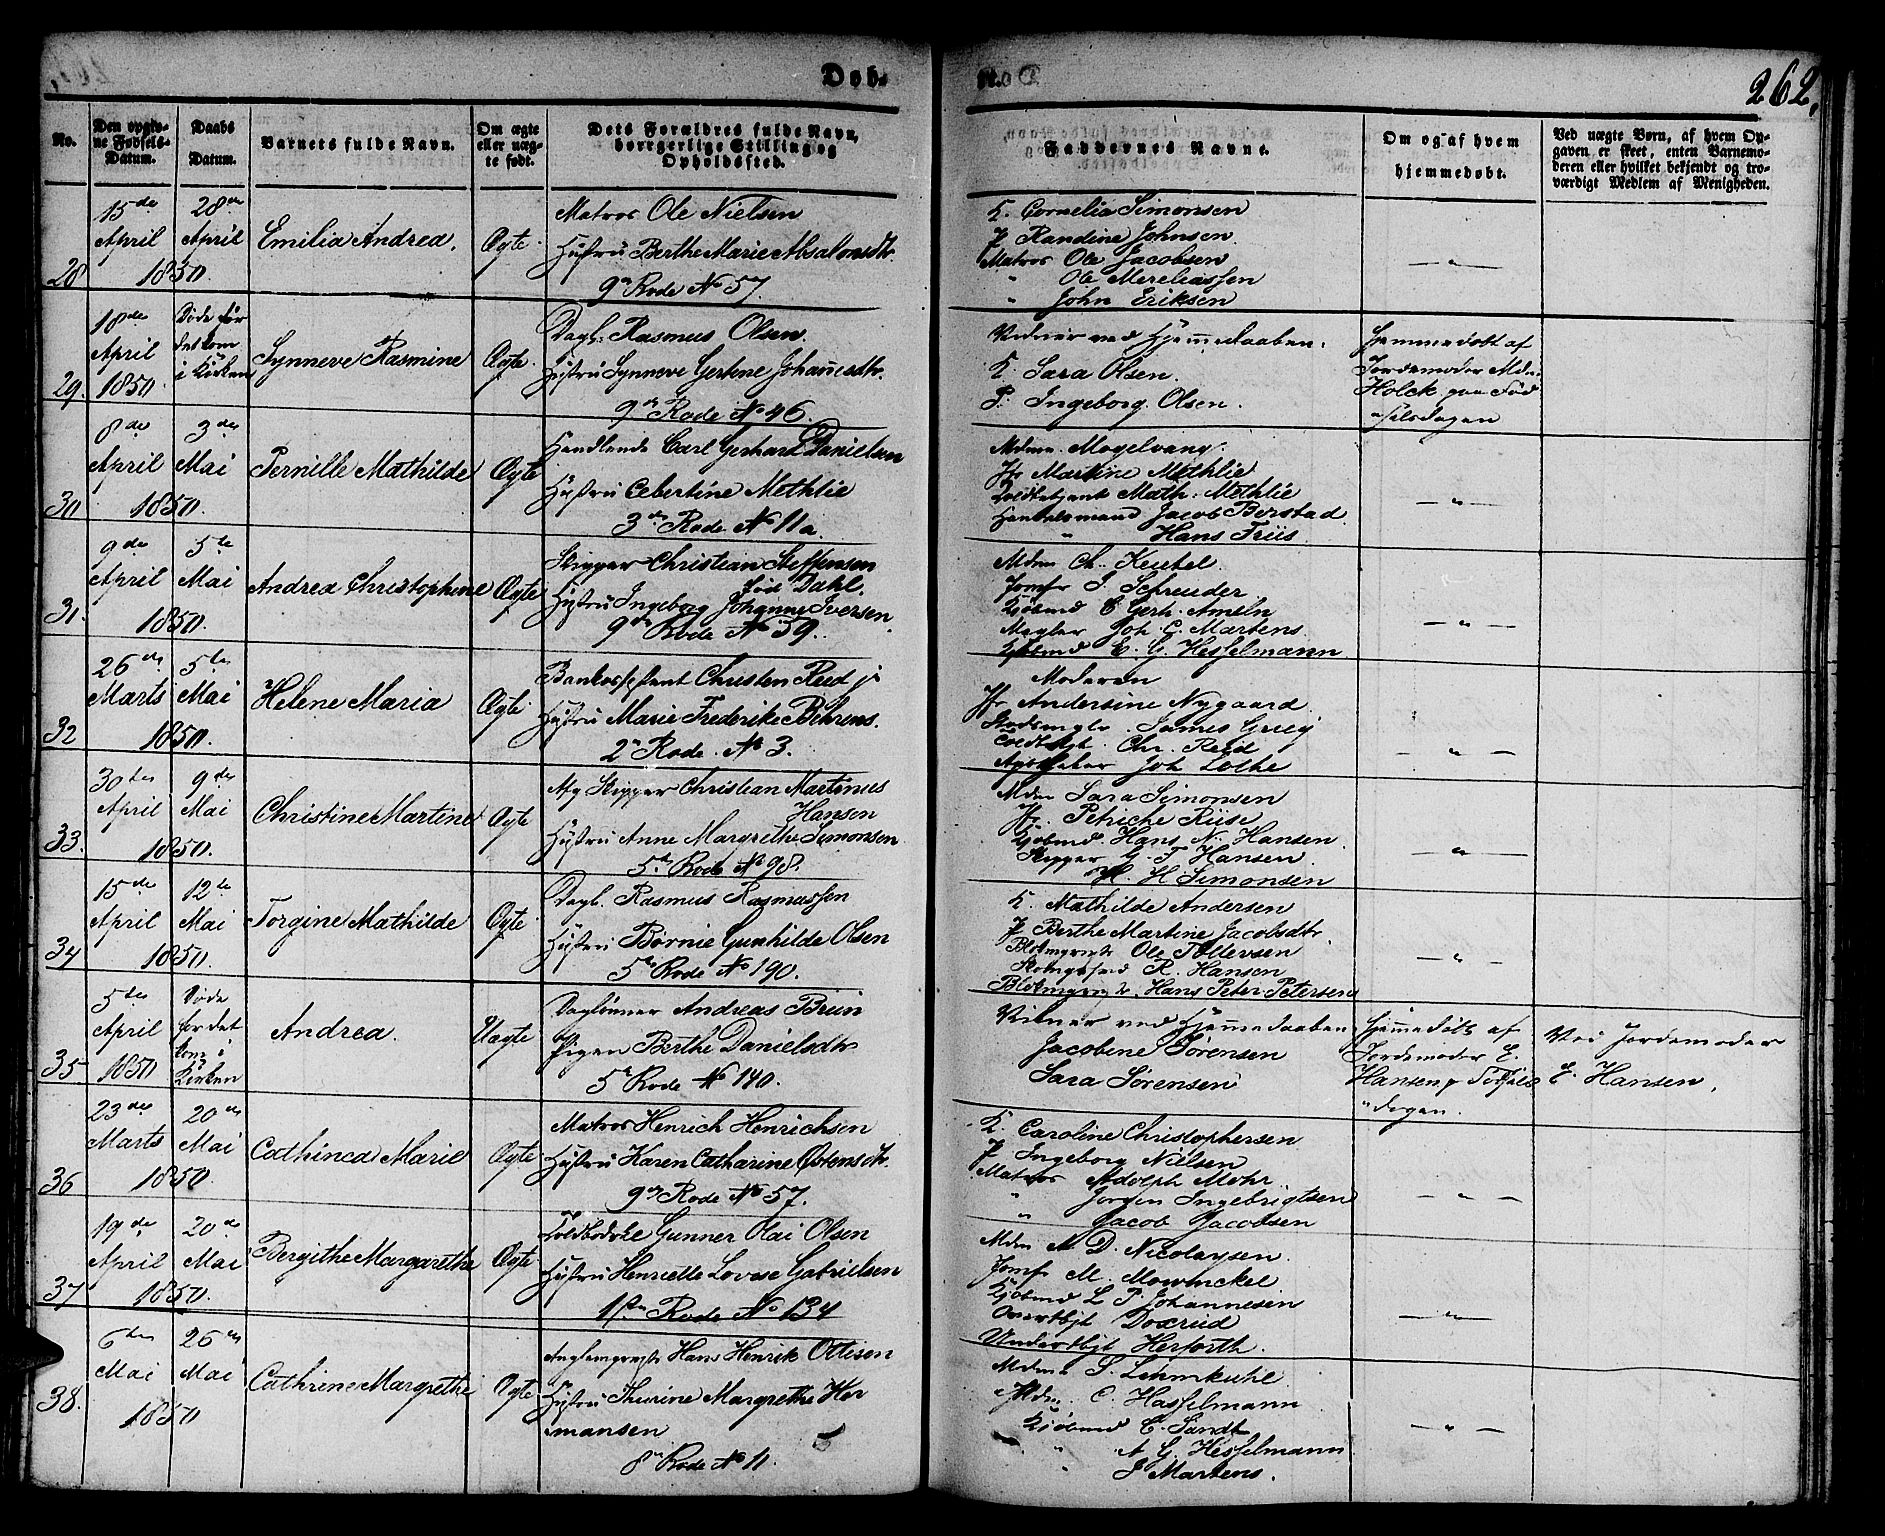 Døb-
262.
No.
Den opgiv-
ne Fødsels-
Datum.
Daabs
Datum.
Barnets fulde Navn.
Om ægte
eller uæg-
te født.
Dets Forældres fulde Navn,
borgerlige Stilling og
Opholdssted.
Faddernes Navne.
Om og af hvem
hjemmedøbt.
Ved uægte Børn, af hvem Op-
gaven er skeet, enten Barnemo-
deren eller hvilket bekjendt og tro-
værdigt Medlem af Menigheden.
28
15de
April
28de
April
1850.
Emilia Andrea.
Ægte
Matros Ole Nielsen
Hustru Berthe Marie Absalonsdtr.
9de Rode No 57.
K. Cornelia Simonsen
P Randine Johnsen
Matros Ole Jacobsen
" Ole Mereliassen
" John Eriksen
— " —
29.
18de
April
1850.
Døde før
det kom
i Kirken
Synneve Rasmine
Ægte
Dagl. Rasmus Olsen.
Hustru Synneve Gertine Johannesdtr.
9de Rode No 46.
Vidner ved Hjemmedaaben.
K. Sara Olsen.
P. Ingeborg Olsen.
Hjemmedøbt af
Jordemoder Mdm.
Holck paa Fød
selsdagen
30
8de
April
3de
Mai
1850.
Pernille Mathilde
Ægte
Handlende Carl Gerhard Danielsen
Hustru Cebertine Methlie
3de Rode No 11a
Mdme. Mogelvang.
Jfr Martine Methlie
Toldbetjent Math. Methlie
Handelsmand Jacob Berstad
" Hans Friis
— " —
31.
9de
April
5te
Mai
1850.
Andrea Christophine
Ægte
Skipper Christian Steffensen
Hustru Ingeborg Johanne Iversen
fød Dahl.
9de Rode No 59.
Mdm Ch. Keubel.
Jomfr J. Schreuder.
Kjøbmd C Gerh. Ameln
Megler Joh. C. Martens
Kjøbmd E. G. Hesselmann
— " —
32
26de
Marts
5te
Mai
1850.
Helene Maria
Ægte
Christen Reid jr
Hustru Marie Frederike Behrens.
2n Rode. No 3.
Moderen
Jfr Andersine Nygaard
James Grieg
Chr. Reid
Apotheker Joh Lothe
— " —
33.
30te
April
9de
Mai
1850.
Christine Martine
Ægte
Skipper Christian Martinus
Hansen
Hustru Anne Margrethe Simonsen
5te Rode No 98.
Mdm Sara Simonsen
Jfr. Petriche Riise
Kjøbmd. Hans N. Hansen
Skipper G. T. Hansen
" H. H Simonsen
— " —
34
15de
April
12te
Mai
1850.
Torgine Mathilde
Ægte
Dagl. Rasmus Rasmussen
Hustru Børnie Gunhilde Olsen
5te Rode No 190.
K. Mathilde Andersen
P Berthe Martine Jacobsdtr.
Ole Tollevsen
R. Hansen
Hans Peter Petersen
— " —
35
5te
April
1850
Døde
før det
kom i
Kirken
Andrea.
Uægte
Daglønner Andreas Bruun
Pigen Berthe Danielsdtr
5te Rode No 140.
Vidner ved Hjemmedaaben
Jacobine Sørensen
Sara Sørensen
Hjemmedøbt af
Jordemoder E.
Hansen p Fødsels
dagen.
Ved Jordemoder
E. Hansen.
36
23de
Marts
20de
Mai
1850
Cathinca Marie
Ægte
Matros Henrich Henrichsen
Hustru Karen Catharine Østensdtr.
9de Rode No 57.
K. Caroline Christophersen
P Ingeborg Nielsen
Matros Adolph Mohr
" Jørgen Ingebrigtsen
" Jacob Jacobsen
— " —
37
19de
April
20de
Mai
1850.
Bergithe Margarethe
Ægte
Gunner Olai Olsen
Hustru Henriette Lovise Gabrielsen
1ste Rode No 134
Mdm A D. Nicolaysen
Jomfr M. Mowinckel
Kjøbmd L P. Johannesen
Overtbjt Doxrud
Undertbjt Herforth.
— " —
38.
6te
Mai
26de
Mai
1850
Cathrine Margrethe
Ægte
Hans Henrik Ottesen
Hustru Thurine Margrethe Her
mansen
8de Rode No 11.
Mdme S. Lehmkuhl
Mdm. C. Hasselmann
Kjøbmd C. Sandt
" A G. Hesselmann
" J Martens.
— " —